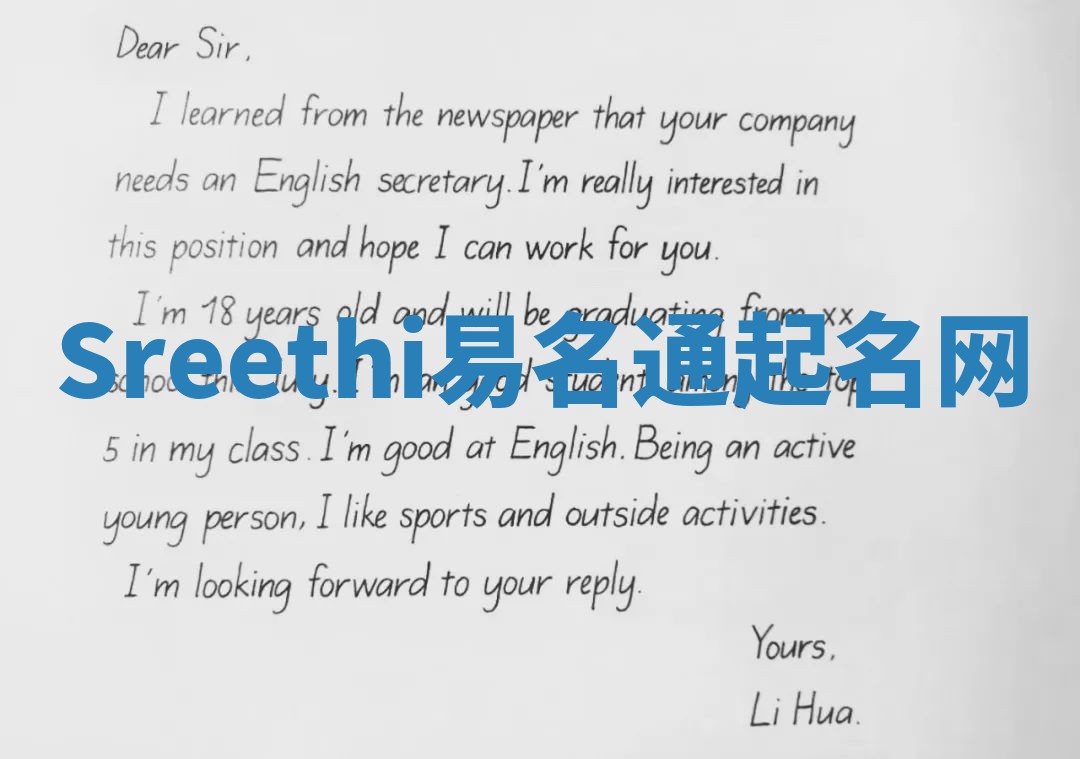 Dear Sir,
I learned from the newspaper that your company
needs an English secretary. I'm really interested in
this position and hope I can work for you.
I'm 18 years old and will be graduating from xx
Sreethi易名通起名网
school this July. I'm a good student among the top
5 in my class. I'm good at English. Being an active
young person, I like sports and outside activities.
I'm looking forward to your reply.
Yours,
Li Hua.